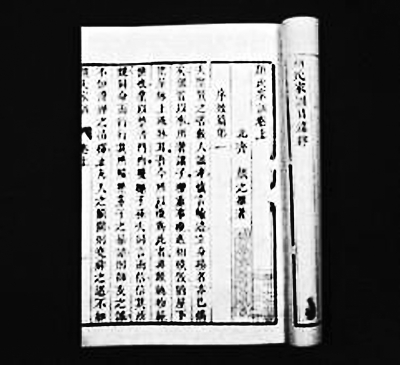 顏氏家訓目錄終
顏氏家訓卷上
北齊 顏之推著
序致篇第一
夫聖賢之書教人誠孝慎言檢迹立身揚名亦已備
矣魏晉以來所著諸子理重事複遞相模斆猶屋下
架屋牀上施牀耳吾今所以復爲此者非敢軌物範
世也業以整齊門內提撕子孫夫同言而信信其所
親同命而行行其所服禁童子之暴謔則師友之誡
不如傅婢之指揮止凡人之鬬鬩則堯舜之道不如
顏氏家訓 卷上